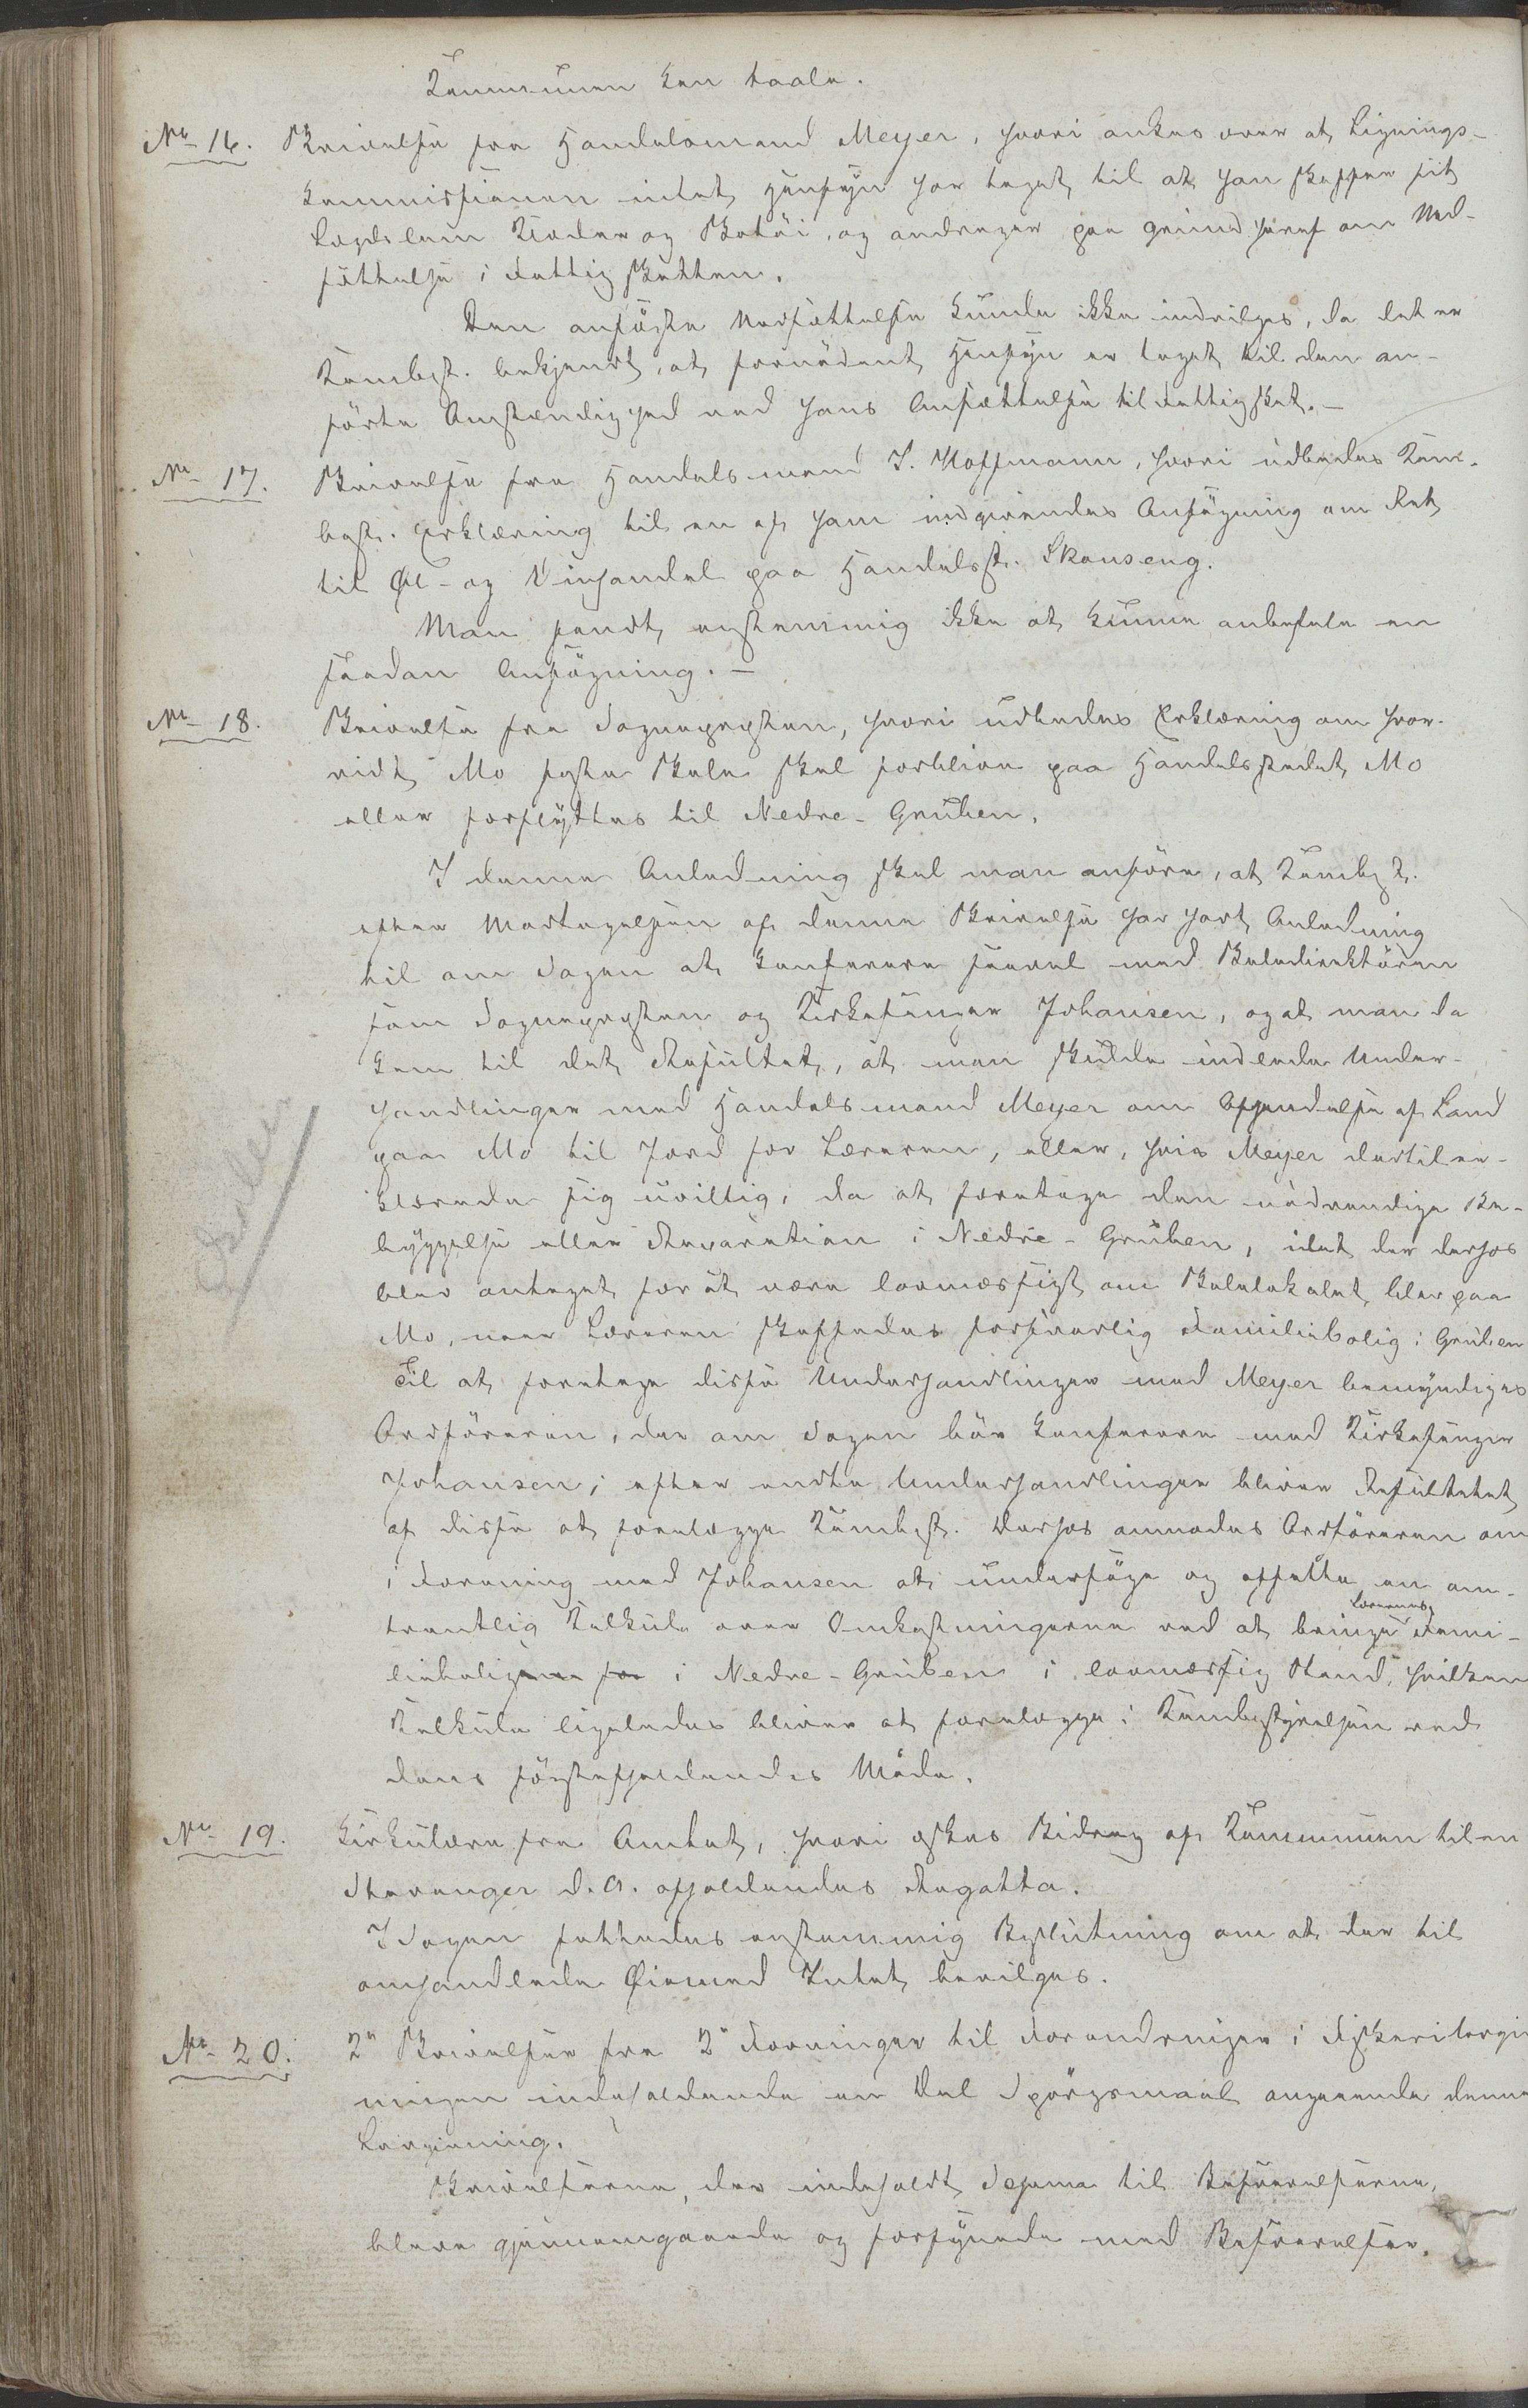 Kommunen kan taale.
No 16. Skrivelse fra Handelsmand Meyer, hvori ankes over at Lignings-
kommissionen intet Hensyn har taget til at han skaffer sit
Lægdslem Klæder og Skotøi, og andrager paa Grund heraf om Ned-
sættelse i Fattigskatten.
Den ansøgte Nedsættelse kunde ikke indvilges, da det er
Kombest. bekjendt, at fornødent Hensyn er taget til den an-
førte Omstændighed ved hans Ansættelse til Fattigskat. –
No 17. Skrivelse fra Handelsmand I. Hoffmann, hvori udbedes Kom-
best. Erklæring til en af ham indgivendes Ansøgning om Ret
til Øl- og Vinhandel paa Handelsst. Skonseng.
Man fandt enstemmig ikke at kunne anbefale en
saadan Ansøgning. –
No 18. Skrivelse fra Sognepresten, hvori udbedes Erklæring om hvor-
vidt Mo faste Skole skal forblive paa Handelsstedet Mo
eller forflyttes til Nedre-Gruben.
I denne Anledning skal man anføre, at Kombest.
efter Modtagelsen af denne Skrivelse har havt Anledning
til om Sagen at konferere saavel med Skoledirektøren
som Sognepresten og Kirkesanger Johansen, og at man da
kom til det Resultat, at man skulde indlede Under-
handlinger med Handelsmand Meyer om Afhendelse af Land
paa Mo til Jord for Læreren, eller, hvis Meyer dertil er-
klærede sig uvillig, da at foretage den nødvendige Be-
byggelse eller Reparation i Nedre-Gruben, idet der derhos
blev antaget for at være lovmæssigt om Skolelokalet blev paa
Mo, naar Læreren skaffedes forsvarlig Familiebolig i Gruben
Til at foretage disse Underhandlinger med Meyer bemyndiges
Ordføreren, der om Sagen bør konferere med Kirkesanger
Johansen; efter endte Underhandlinger bliver Resultatet
af disse at forelægge Kombest. Derhos anmodes Ordføreren om
i Forening med Johansen at undersøge og opsætte en om-
trentlig Kalkule over Omkostningerne ved at bringe Lærerens Fami-
liebolig i Nedre-Gruben i lovmæssig Stand, hvilken
Kalkule ligeledes bliver at forelægge i Kombestyrelsen ved
dens førstafholdendes Møde.
No 19. Cirkulære fra Amtet, hvori æskes Bidrag af Kommunen til en
Stavanger d. A. afholdendes Regatta.
I Sagen fattedes enstemmig Beslutning om at der til
omhandlede Øiemed Intet bevilges.
No 20. 2de Skrivelser fra 2de Foreninger til Forandringer i Fiskerilovgiv
ningen indeholdende en Del Spørgsmaal angaaende denne
Lovgivning.
Skrivelserne, der indeholdt Schema til Besvarelserne,
bleve gjennemgaaede og forsynede med Besvarelser.